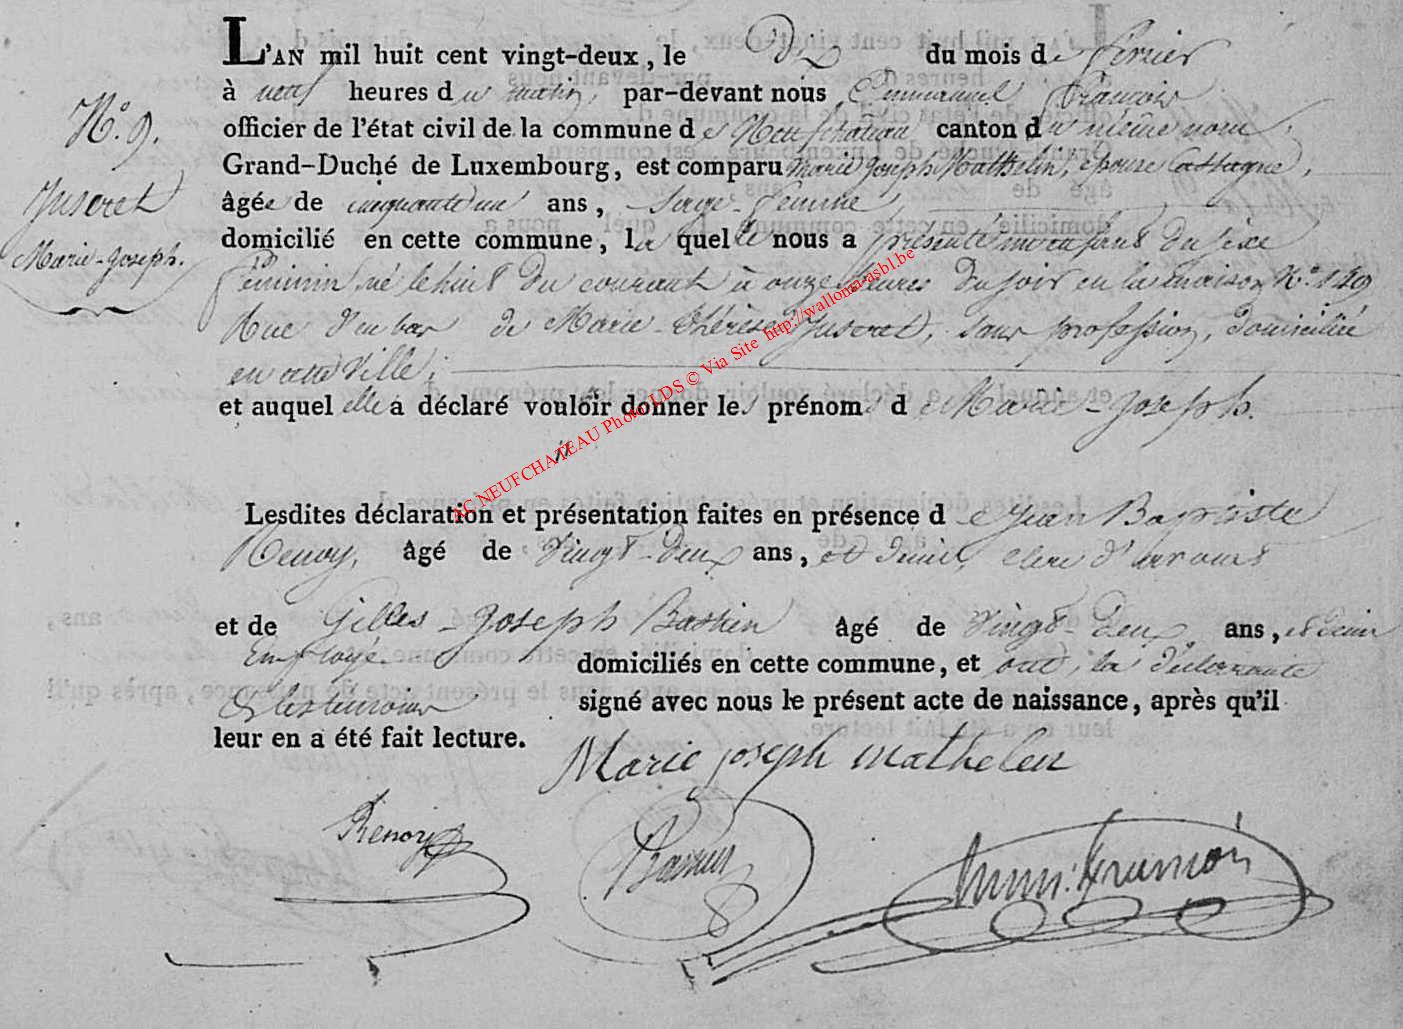 L'AN mil huit cent vingt-deux, le Dix du mois de fevrier
à neuf heures du matin, par-devant nous Emmanuel François
N.° 9.
officier de l'état civil de la commune de Neufchateau canton du même nom,
Grand-Duché de Luxembourg, est comparu Marie Joseph Mathelin, épouse Cassagne,
Juseret
âgée de cinquante un ans, Sage-femme,
Marie-Joseph.
domicilié en cette commune, laquelle nous a présenté un enfant du sexe
féminin né le huit du courant à onze heures du soir en la maison N.° 149
Rue d'en bas de Marie-Thérèse Juseret, sans profession, domiciliée
en cette Ville;
et auquel elle a déclaré vouloir donner les prénoms de Marie-Joseph.
Lesdites déclaration et présentation faites en présence de Jean Baptiste
Renoy, âgé de Vingt-deux ans, et demi, clerc d'avoué
et de Gilles-Joseph Bastin âgé de Vingt-deux ans, et demi
Employé. domiciliés en cette commune, et ont, la déclarante
& les témoins signé avec nous le présent acte de naissance, après qu'il
leur en a été fait lecture.
Marie joseph mathelin
Renoy
Bastin
Emm: François
AC NEUFCHATEAU Photo LDS © Via Site http://wallonia-asbl.be